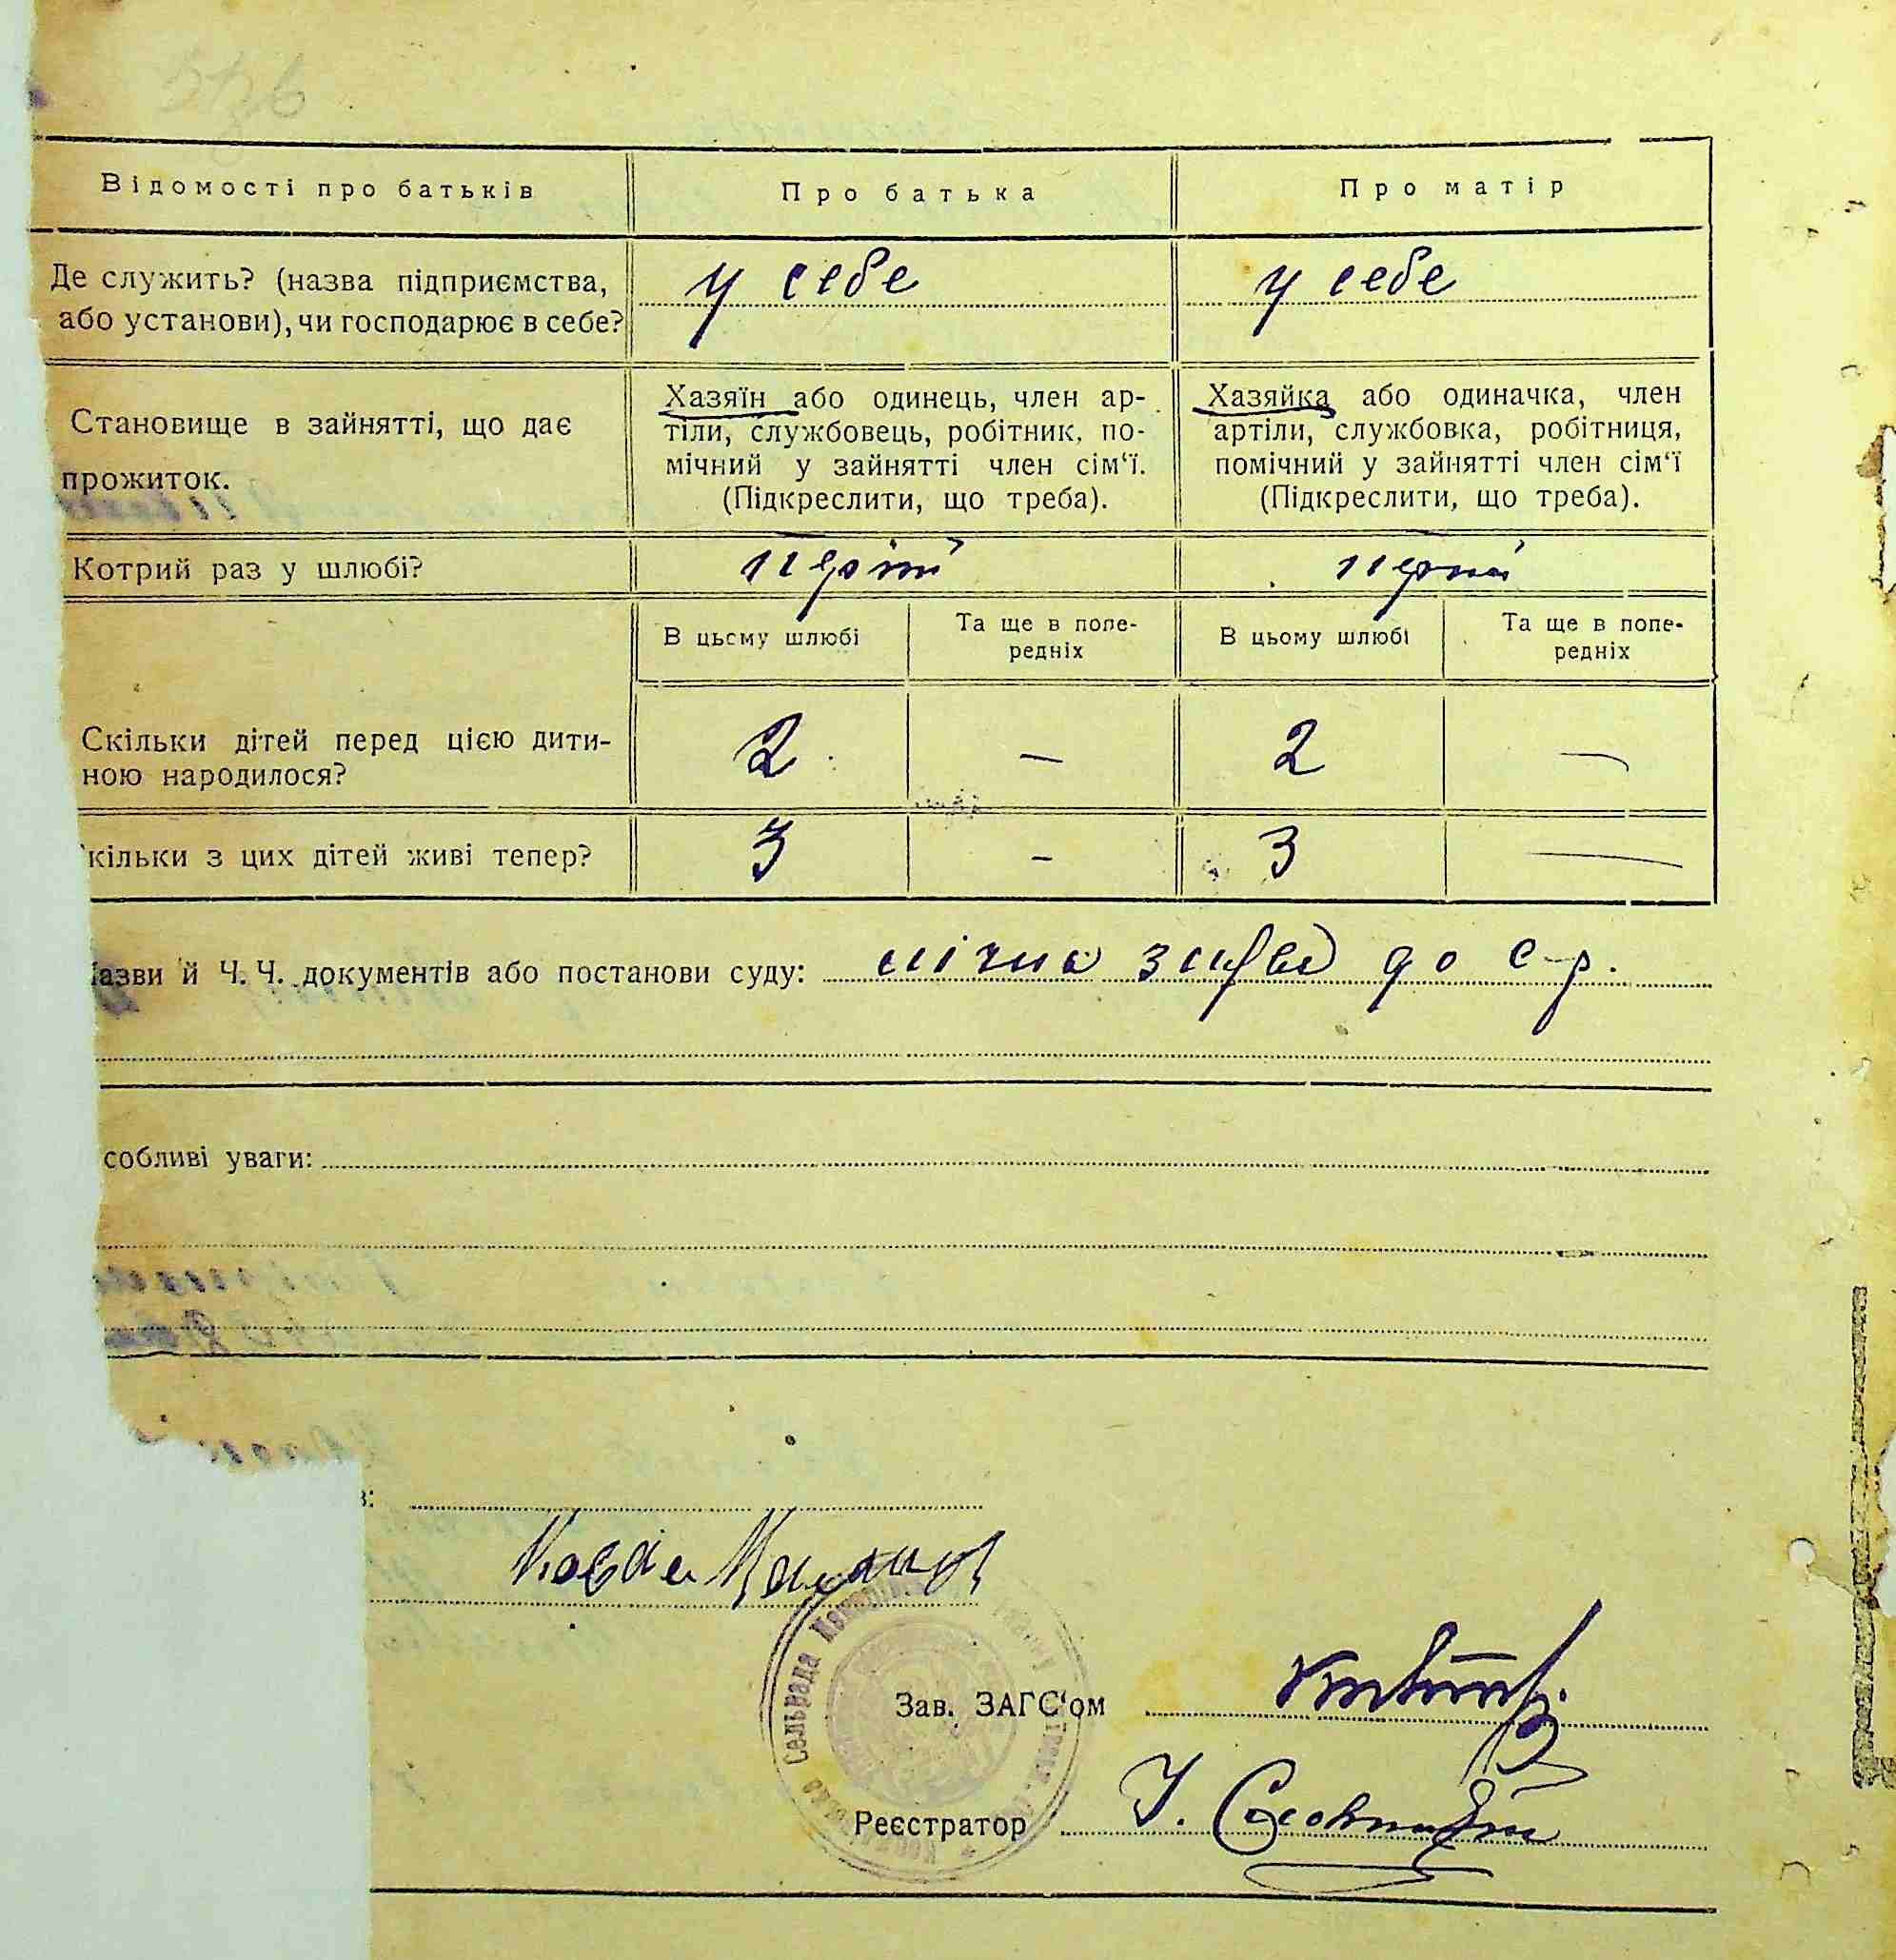 Відомості про батьків
Про батька
Про матір
Де служить? (назва підприємства,
або установи), чи господарює в себе?
у себе
у себе
Становище в зайнятті, що дає
прожиток.
Хазяїн або одинець, член ар-
тіли, службовець, робітник, по-
мічний у зайнятті член сім‘ї.
(Підкреслити, що треба).
Хазяйка або одиначка, член
артіли, службовка, робітниця,
помічний у зайнятті член сім‘ї
(Підкреслити, що треба).
Котрий раз у шлюбі?
В цьому шлюбі
Та ще в попе-
редніх
В цьому шлюбі
Та ще в попе-
редніх
Скільки дітей перед цією дити-
ною народилося?
2
—
2
—
кільки з цих дітей живі тепер?
3
-
3
—
азви й Ч. Ч. документів або постанови суду: до с-р.
собливі уваги:
в:
Зав. ЗАГС‘ом
Реєстратор
Сельрада